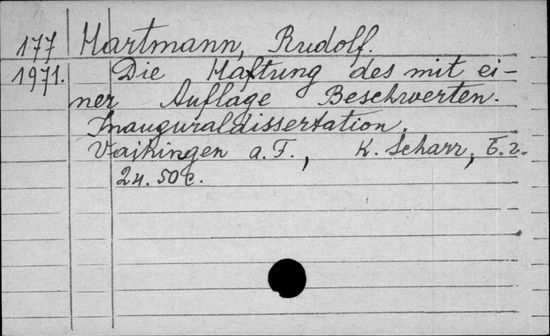 177 Hartmann, Rudolf.
1971. Die Haftung des mit ei-
ner Auflage Beschwerten.
Inauguraldissertation.
Vaihingen a.F., K. Scharr, б.г.
24. 50 с.